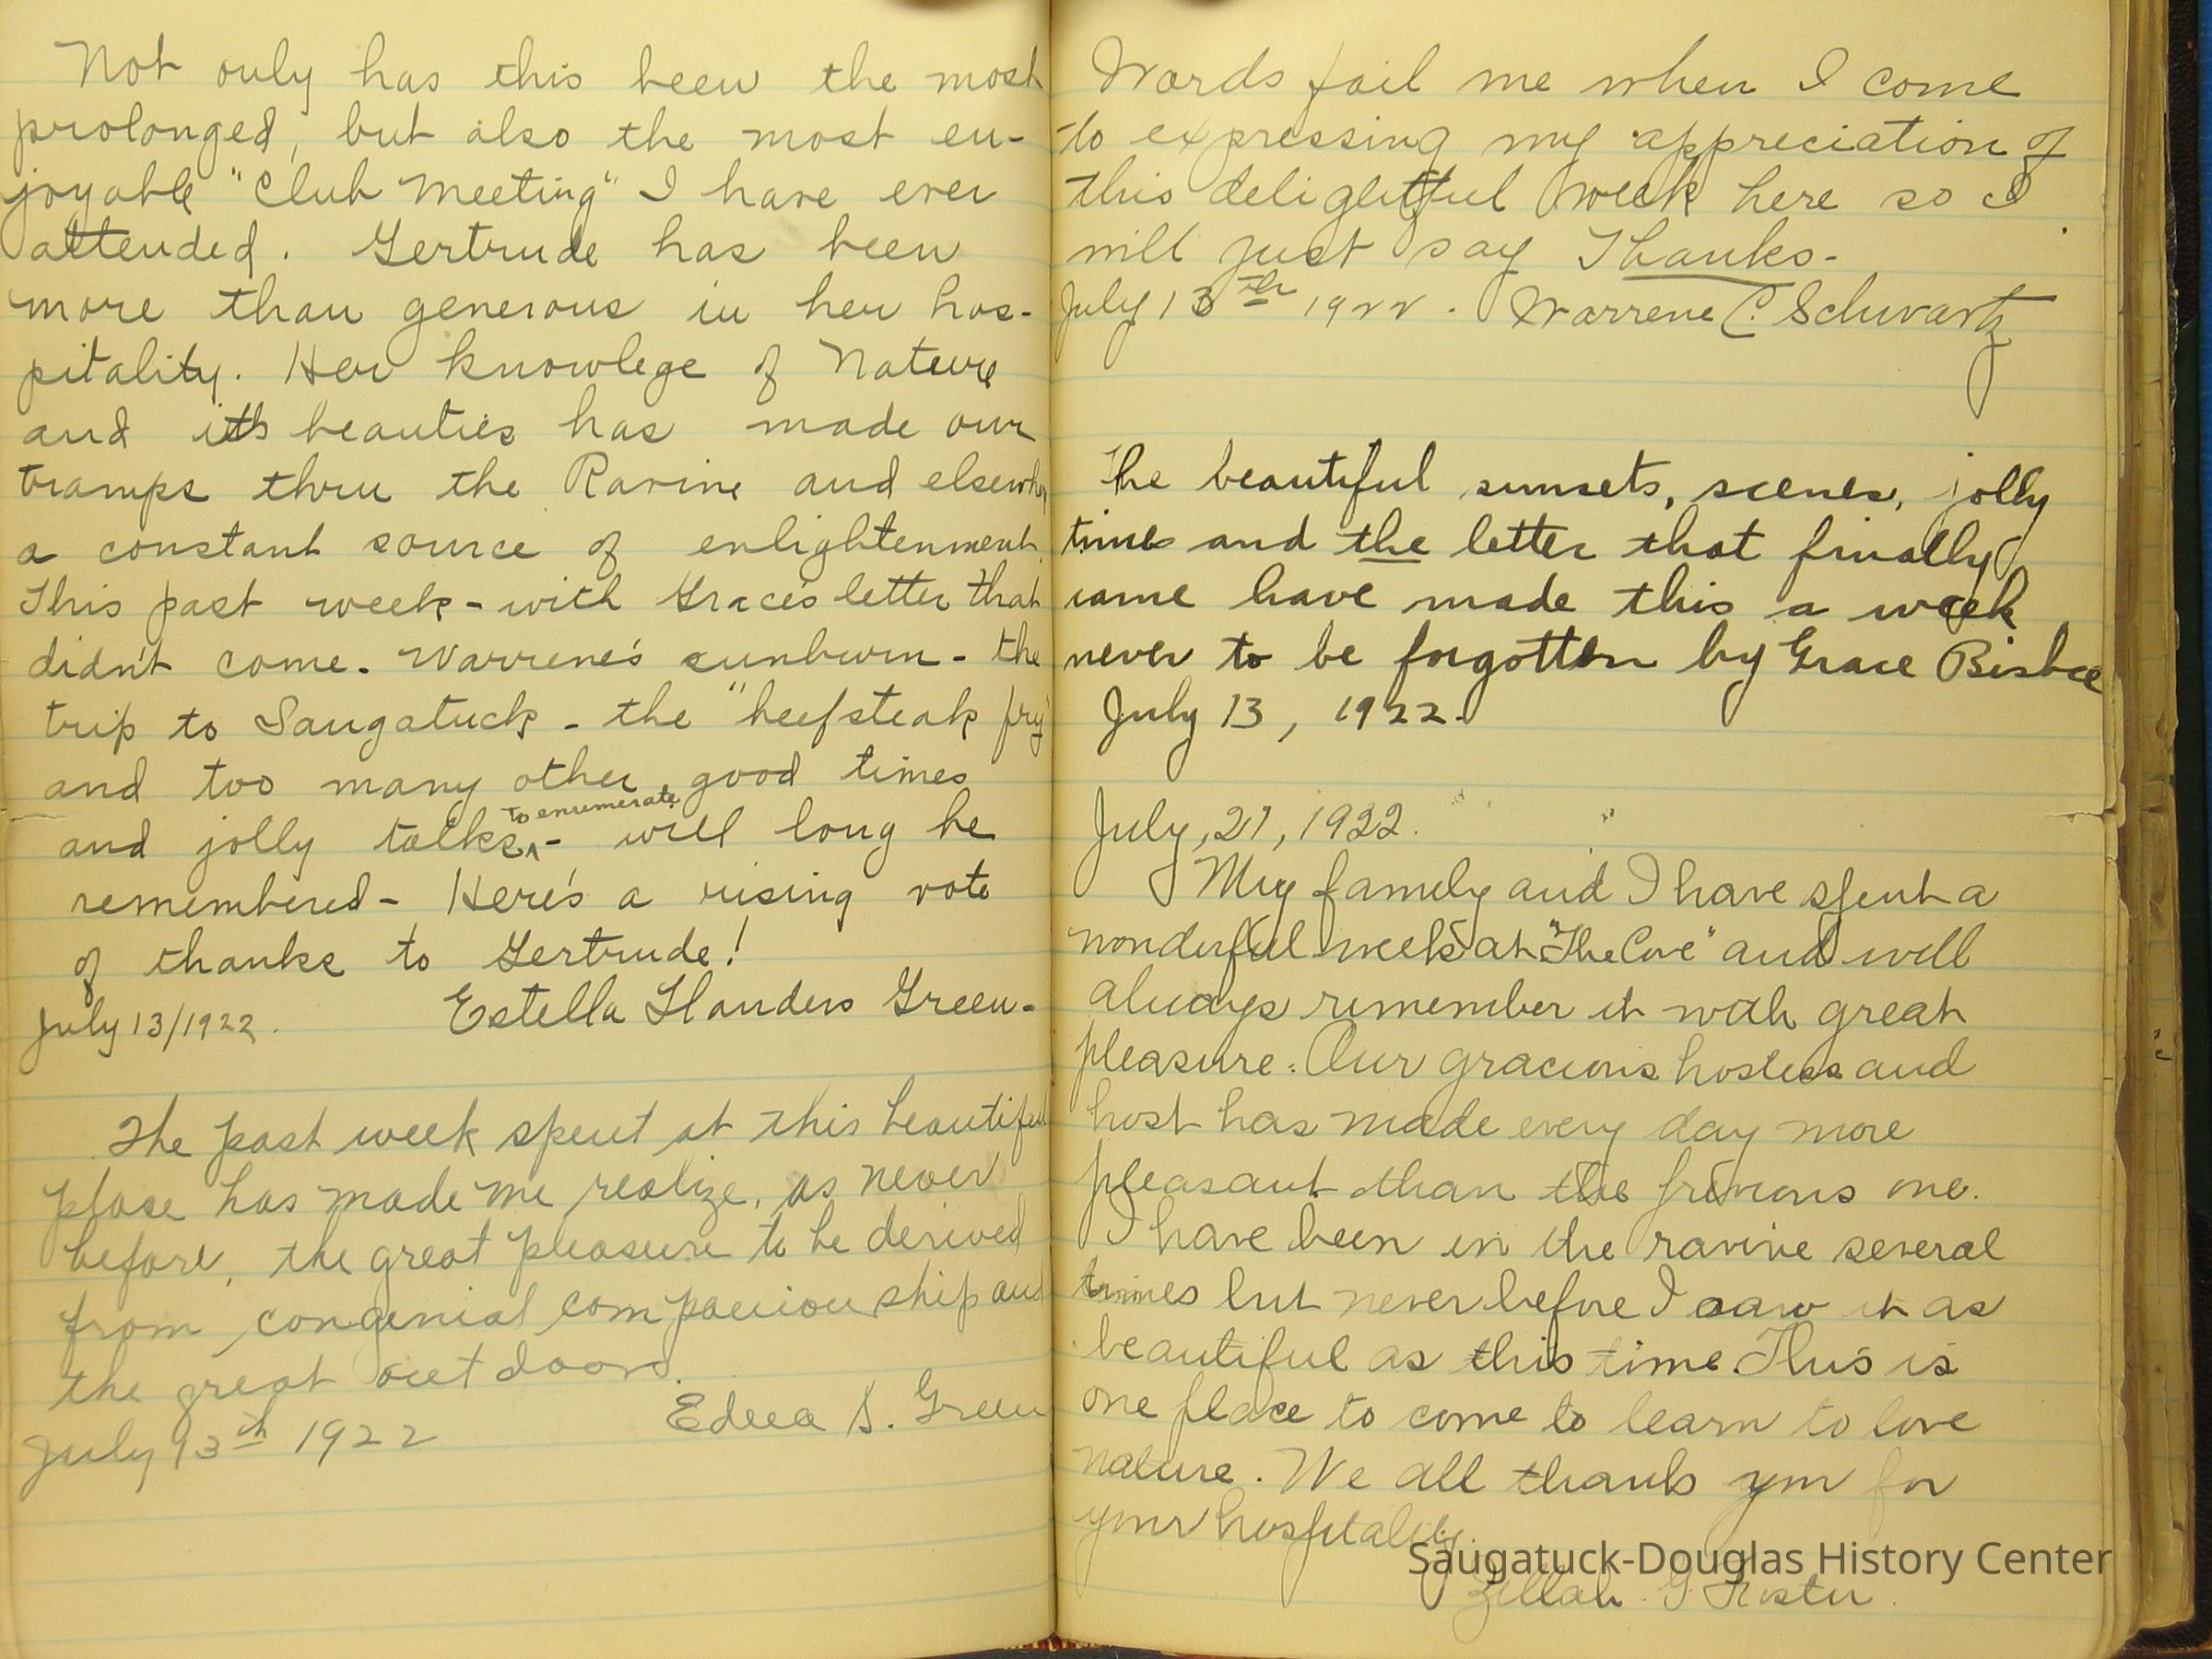 Not only has this been the most
prolonged, but also the most en-
joyable "Club Meeting" I have ever
attended. Gertrude has been
more than generous in her hos-
pitality. Her knowlege of Nature
and its beauties has made our
tramps thru the Ravine and elsewher
a constant source of enlightenment.
This past week - with Grace's letter that
didn't come - Warrene's sunburn - the
trip to Saugatuck - the "beefsteak fry"
and too many other good times
to enumerate
and jolly talks - will long be
remembered - Here's a rising vote
of thanks to Gertrude!
July 13/1922. Estella Flanders Green -
The past week spent at this beautiful
place has made me realize, as never
before, the great pleasure to be derived
from congenial companionship and
the great out doors.
July 13th 1922 Edna S. Green
Words fail me when I come
to expressing my appreciation of
this delightful week here so I
will just say Thanks -
July 13th 1922. Warrene C. Schwartz
The beautiful sunsets, scenes, jolly
times and the letter that finally
came have made this a week
never to be forgotten by Grace Bisbee
July 13, 1922.
July, 21, 1922.
My family and I have spent a
wonderful week at "The Cove" and will
always remember it with great
pleasure. Our gracious hostess and
host has made every day more
pleasant than the previous one.
I have been in the ravine several
times but never before I saw it as
beautiful as this time This is
one place to come to learn to love
nature. We all thank you for
your hospitality.
Zellah G. Foster.
Saugatuck-Douglas History Center